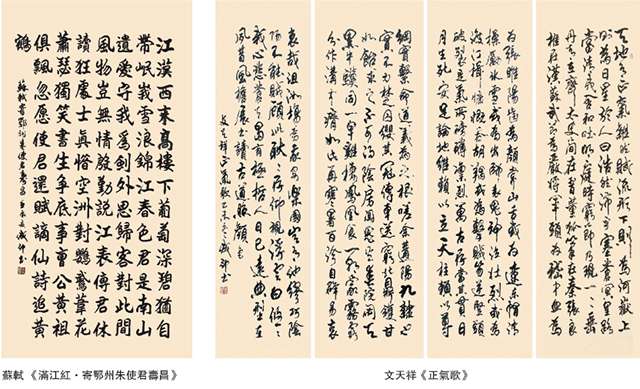 江漢西來高樓下葡萄深碧猶自
帶岷峩雪浪錦江春色君是南山
遺愛守我為劍外思歸客對此間
風物豈無情殷勤說江表傳君休
讀狂處士真堪惜空洲對鸚鵡葦花
蕭瑟獨笑書生爭底事曹公黃祖
俱飄忽愿使君還賦謫仙詩追黃
鶴
蘇軾寄鄂州朱使君壽昌
天地有正氣雜然賦流形下則為河嶽上
則為日星於人曰浩然沛乎塞蒼冥皇路
當清夷含和吐明庭時窮節乃見一一垂
丹青在齊太史簡在晉董狐筆在秦張良
椎在漢蘇武節為嚴將軍頭為嵇侍中血
為張睢陽齒為顏常山舌或為遼東帽清
操厲冰雪或為出師表鬼神泣壯烈或為
渡江楫慷慨吞胡羯或為擊賊笏逆豎頭
破裂是氣所磅礴凜烈萬古存當其貫日
月生死安足論地維賴以立天柱賴以尊
綱實繫命道義為之根嗟余遘陽九隸也
實不力楚囚纓其冠傳車送窮北鼎鑊甘
如飴求之不可得陰房闃鬼火春院閟天
黑牛驥同一皂雞棲鳳凰食一朝蒙霧露
分作溝中瘠如此再寒暑百沴自辟易
哀哉沮洳場為我安樂國豈有他繆巧陰
陽不能賊顧此耿耿存仰視浮雲白悠悠
我心悲蒼天曷有極哲人日已遠典型在
夙昔風檐展書讀古道照顏色
文天祥正氣歌
蘇軾《滿江紅·寄鄂州朱使君壽昌》
文天祥《正氣歌》